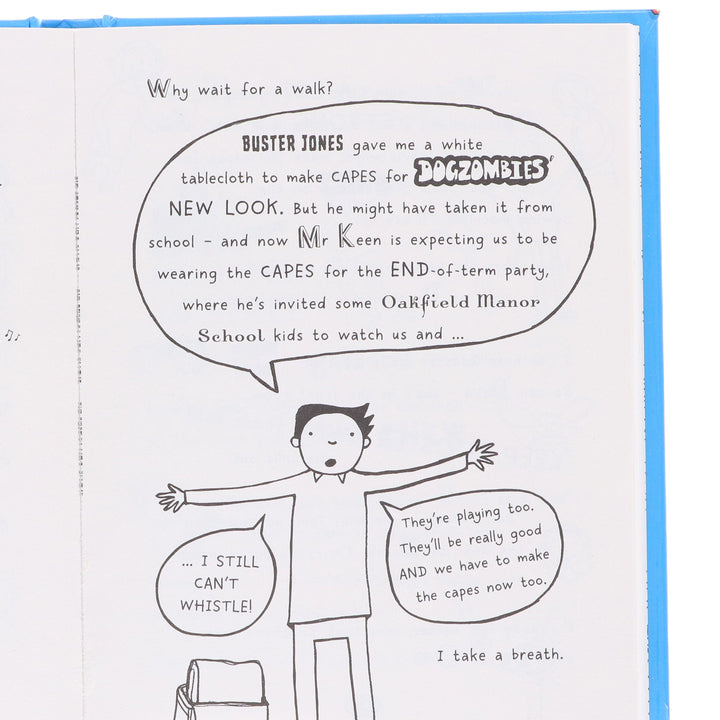 Why wait for a walk?
BUSTER JONES gave me a white
tablecloth to make CAPES for DOGZOMBIES'
NEW LOOK. But he might have taken it from
school – and now Mr Keen is expecting us to be
wearing the CAPES for the END-of-term party,
where he's invited some Oakfield Manor
School kids to watch us and ...
They're playing too.
They'll be really good
AND we have to make
the capes now too.
... I STILL
CAN'T
WHISTLE!
I take a breath.